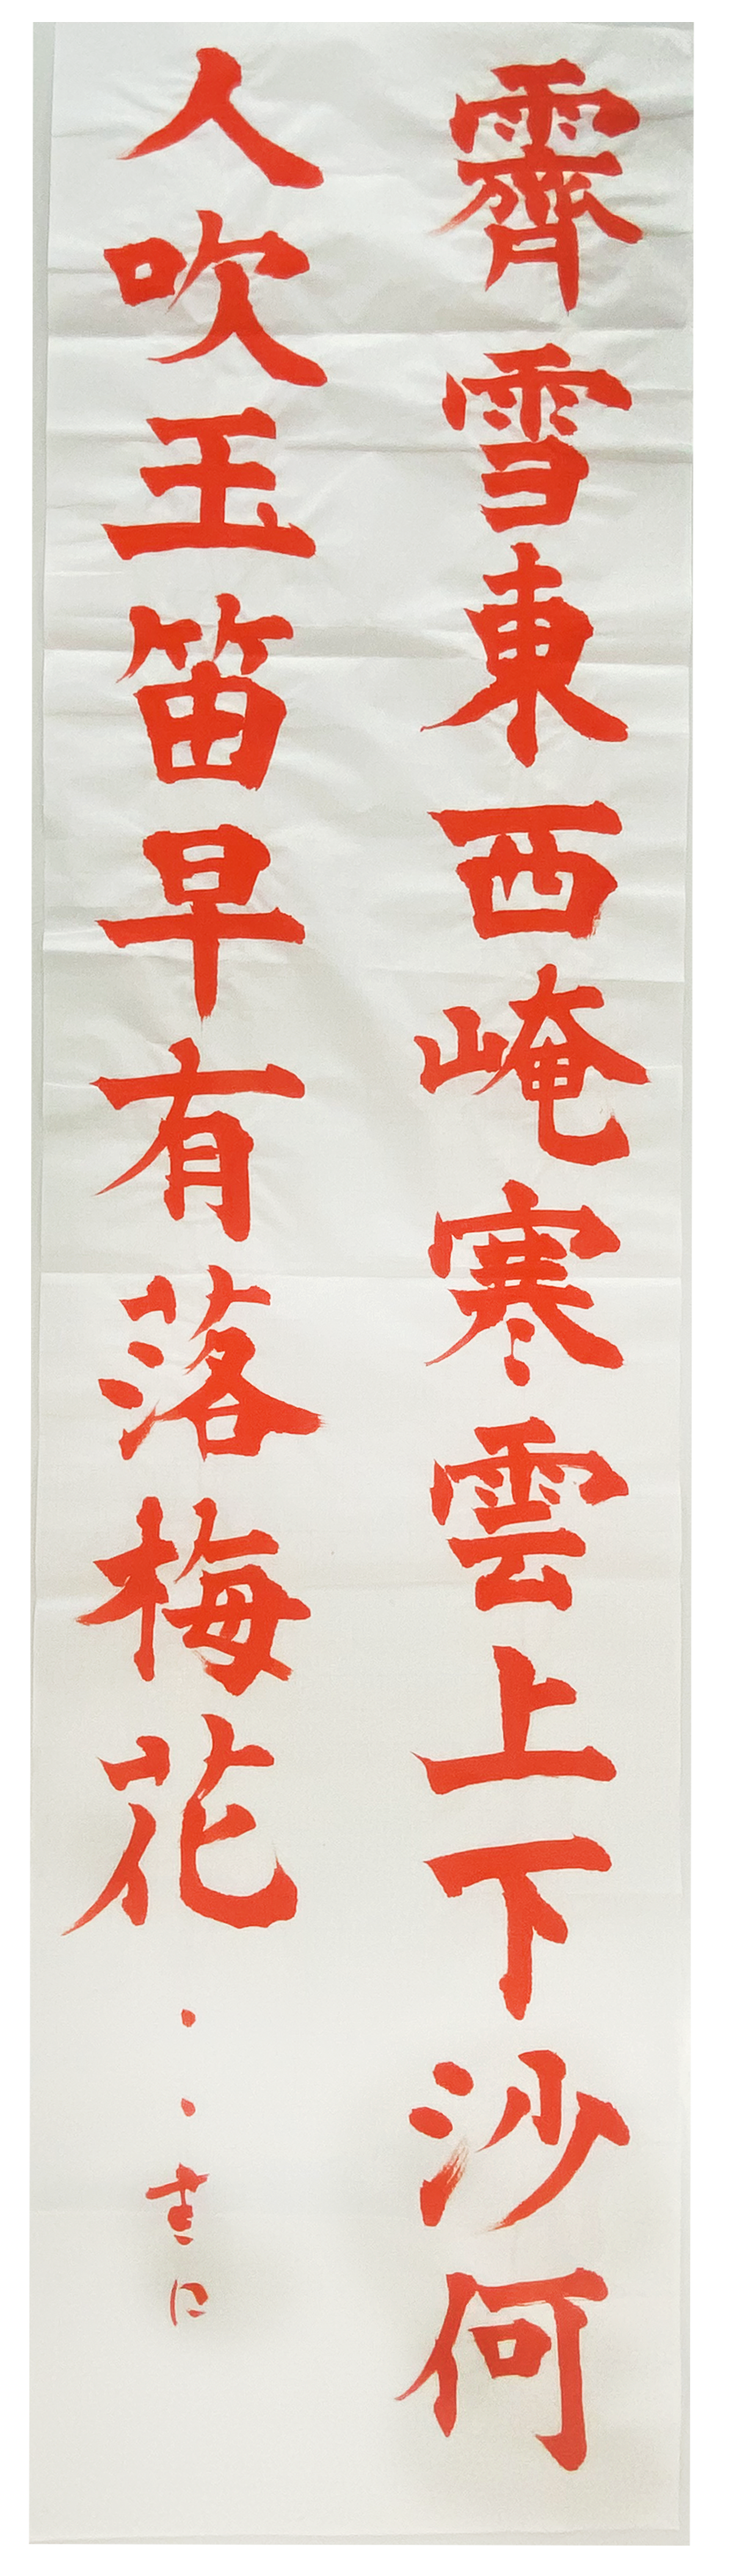 霽雪東西崦寒雲上下沙何
人吹玉笛早有落梅花
書